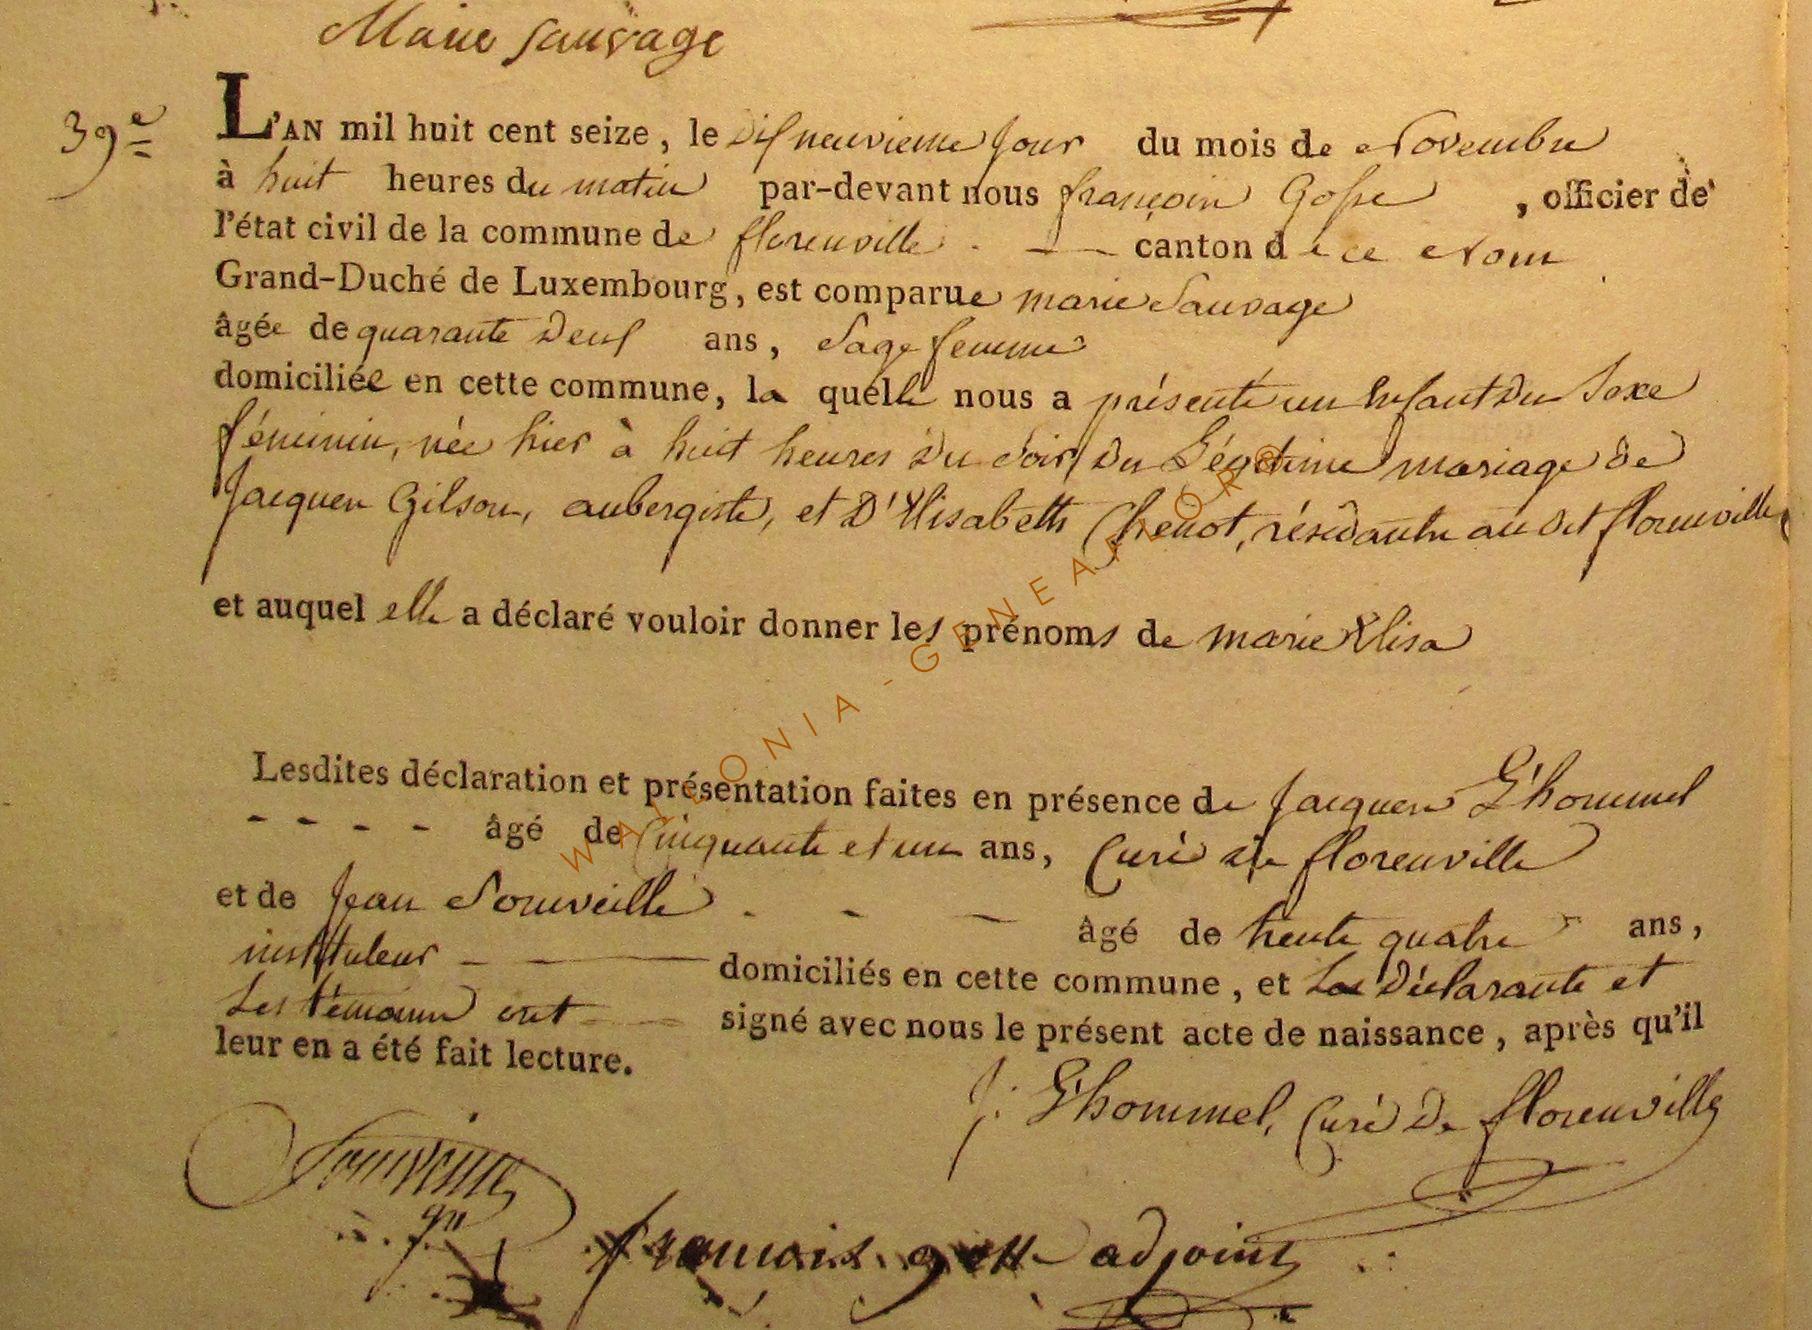 Marie Sauvage
39e
L'AN mil huit cent seize, le dixneuvieme jour du mois de Novembre
à huit heures du matin par-devant nous françois Gosse, officier de
l'état civil de la commune de florenville - — canton de ce Nom
Grand-Duché de Luxembourg, est comparue marie Sauvage
âgée de quarante deux ans, Sage femme
domiciliée en cette commune, la quelle nous a présenté un Enfant du Sexe
féminin, née hier à huit heures du soir, du Légitime mariage de
Jacques Gilson, aubergiste, et D'Elisabeth Chenot, résidants au dit florenville
et auquel elle a déclaré vouloir donner les prénoms de marie Elisa
Lesdites déclaration et présentation faites en présence de Jacques L'hommel
- - - - âgé de Cinquante et un ans, Curé de florenville
et de Jean Souveille - - — âgé de trente quatre ans,
instituteur - — — domiciliés en cette commune, et La Déclarante et
Les témoins ont — signé avec nous le présent acte de naissance, après qu'il
leur en a été fait lecture.
J. L'hommel, Curé De florenville
françois gosse adjoint
WALLONIA-GENEAFLOR